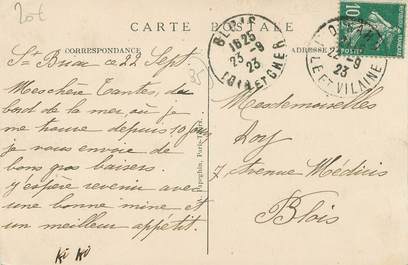 20€
CARTE POSTALE
CORRESPONDANCE
ADRESSE
St Briac ce 22 Sept.
Mes chère Tantes, du
bord de la mer, où je
me trouve depuis 10 jours
je vous envoie de
bons gros baisers.
J'espère revenir avec
une bonne mine et
un meilleur appétit.
Ki Ki
BLOIS
16 25
23 - 9
23
LOIR ET CHER
22 - 9
23
ILLE ET VILAINE
10
Mesdemoiselles
Roy
7 Avenue Médicis
Blois